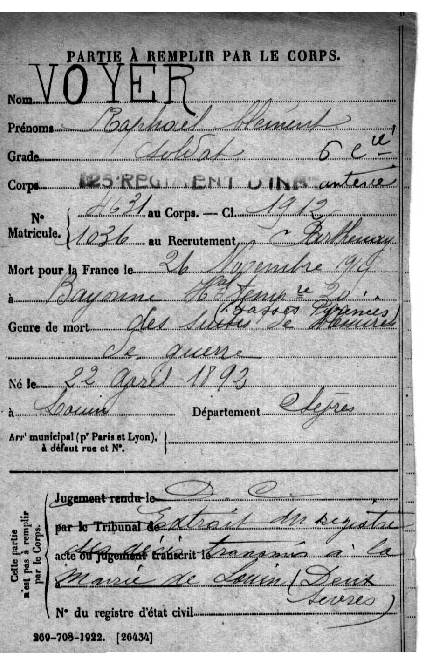 PARTIE À REMPLIR PAR LE CORPS.
Nom VOYER
Prénoms Raphaël Clément
Grade Soldat 6e Cie
Corps 125 REGIMENT D'INFanterie
N° Matricule. 4631 au Corps. — Cl. 1912
1036 au Recrutement Parthenay
Mort pour la France le 26 Novembre 1918
à Bayonne Hal temp re
(Basses Pyrénées)
Genre de mort des suites de
de guerre
Né le 22 Avril 1893
à Louin Département Sèvres
Arrt municipal (pr Paris et Lyon), à défaut rue et N°.
Cette partie n'est pas à remplir par le Corps.
Jugement rendu le D. C.
par le Tribunal de Extrait du registre
acte ou jugement transcrit le transmis à la
à Mairie de Louin (Deux
Sèvres)
N° du registre d'état civil
269-708-1922. [26434]